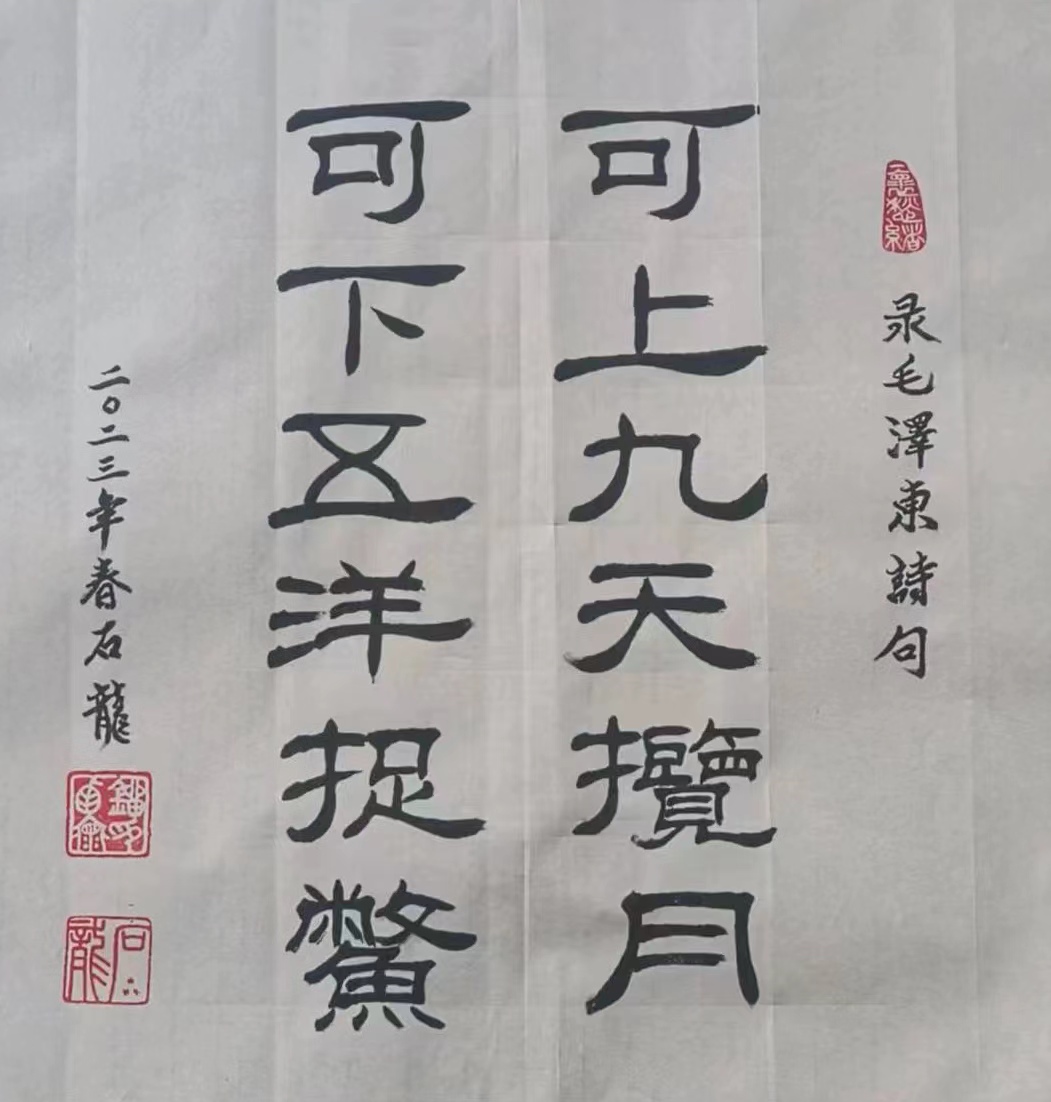 录毛澤東詩句
可上九天攬月
可下五洋捉鱉
二〇二三年春石龍
石龍